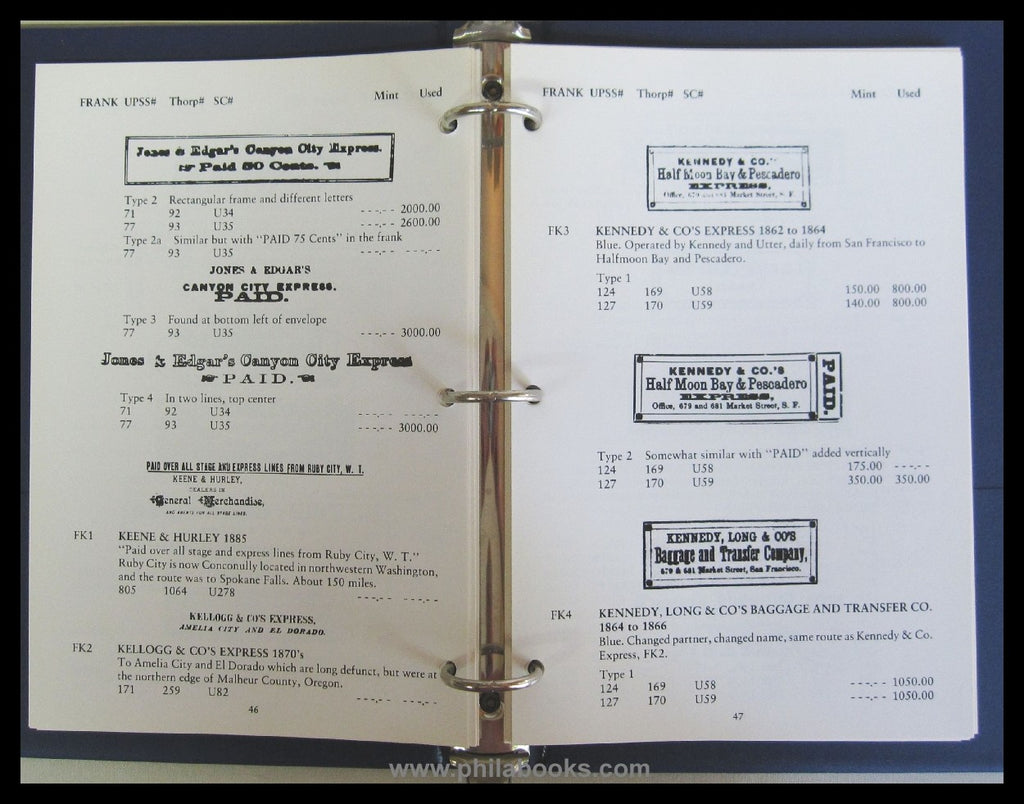 FRANK UPSS# Thorp# SC# Mint Used
Jones & Edgar's Canyon City Express.
Paid 50 Cents.
Type 2 Rectangular frame and different letters
71 92 U34 --.-- 2000.00
77 93 U35 --.-- 2600.00
Type 2a Similar but with "PAID 75 Cents" in the frank
77 93 U35 --.-- --.--
JONES & EDGAR'S
CANYON CITY EXPRESS.
PAID.
Type 3 Found at bottom left of envelope
77 93 U35 --.-- 3000.00
Jones & Edgar's Canyon City Express
PAID.
Type 4 In two lines, top center
71 92 U34 --.-- --.--
77 93 U35 --.-- 3000.00
PAID OVER ALL STAGE AND EXPRESS LINES FROM RUBY CITY, W. T.
KEENE & HURLEY,
DEALERS IN
General Merchandise,
AND AGENTS FOR ALL STAGE LINES.
FK1 KEENE & HURLEY 1885
"Paid over all stage and express lines from Ruby City, W. T."
Ruby City is now Conconully located in northwestern Washington,
and the route was to Spokane Falls. About 150 miles.
805 1064 U278 --.-- --.--
KELLOGG & CO'S EXPRESS,
AMELIA CITY AND EL DORADO.
FK2 KELLOGG & CO'S EXPRESS 1870's
To Amelia City and El Dorado which are long defunct, but were at
the northern edge of Malheur County, Oregon.
171 259 U82 --.-- --.--
46
FRANK UPSS# Thorp# SC# Mint Used
KENNEDY & CO.'S
Half Moon Bay & Pescadero
EXPRESS,
Office, 679 and 681 Market Street, S. F.
FK3 KENNEDY & CO'S EXPRESS 1862 to 1864
Blue. Operated by Kennedy and Utter, daily from San Francisco to
Halfmoon Bay and Pescadero.
Type 1
124 169 U58 150.00 800.00
127 170 U59 140.00 800.00
KENNEDY & CO.'S
Half Moon Bay & Pescadero
EXPRESS,
Office, 679 and 681 Market Street, S. F.
PAID.
Type 2 Somewhat similar with "PAID" added vertically
124 169 U58 175.00 --.--
127 170 U59 350.00 350.00
KENNEDY, LONG & CO'S
Baggage and Transfer Company,
679 & 681 Market Street, San Francisco.
FK4 KENNEDY, LONG & CO'S BAGGAGE AND TRANSFER CO.
1864 to 1866
Blue. Changed partner, changed name, same route as Kennedy & Co.
Express, FK2.
Type 1
124 169 U58 --.-- 1050.00
127 170 U59 --.-- 1050.00
47
www.philabooks.com